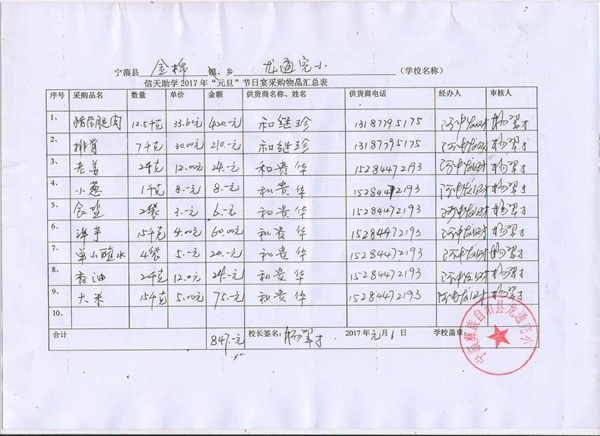 宁蒗县 金棉 镇、乡 龙通完小 (学校名称)
信天助学2017年“元旦”节日宴采购物品汇总表
序号 采购品名 数量 单价 金额 供货商名称、姓名 供货商电话 经办人 审核人
1、 猪后腿肉 12.5千克 33.60元 420.-元 和继珍 13187395175
2、 排骨 7千克 30.00元 210.-元 和继珍 13187395175
3、 老姜 2千克 12.00元 24.-元 和贵华 15284472193
4、 小葱 1千克 8.-元 8.-元 和贵华 15284472193
5、 食盐 2袋 3.-元 6.-元 和贵华 15284472193
6、 洋芋 15千克 4.00元 60.00元 和贵华 15284472193
7、 单山蘸水 4袋 5.-元 20.-元 和贵华 15284472193
8、 香油 2千克 12.0元 24.-元 和贵华 15284472193
9、 大米 15千克 5.00元 75.-元 和贵华 15284472193
10、
合计 847.-元 校长签名: 2017年元月1日 学校盖章:
宁蒗彝族自治县龙通完小